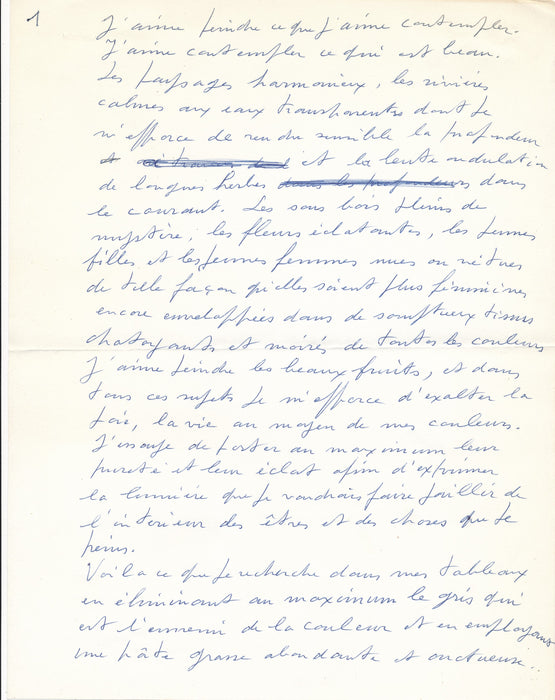 1
J'aime peindre ce que j'aime contempler.
J'aime contempler ce qui est beau.
Les paysages harmonieux, les rivières
calmes aux eaux transparentes dont je
m'efforce de rendre sensible la profondeur
et la lente ondulation
de longues herbes dans les profondeurs dans
le courant. Les sous bois pleins de
mystère, les fleurs éclatantes, les jeunes
filles et les jeunes femmes nues ou vêtues
de telle façon qu'elles soient plus féminines
encore enveloppées dans de somptueux tissus
chatoyants et moirés de toutes les couleurs
J'aime peindre les beaux fruits, et dans
tous ces sujets je m'efforce d'exalter la
joie, la vie au moyen de mes couleurs.
J'essaye de porter au maximum leur
pureté et leur éclat afin d'exprimer
la lumière que je voudrais faire jaillir de
l'intérieur des êtres et des choses que je
peins.
Voila ce que je recherche dans mes tableaux
en éliminant au maximum le gris qui
est l'ennemi de la couleur et en employant
une pâte grasse abondante et onctueuse..